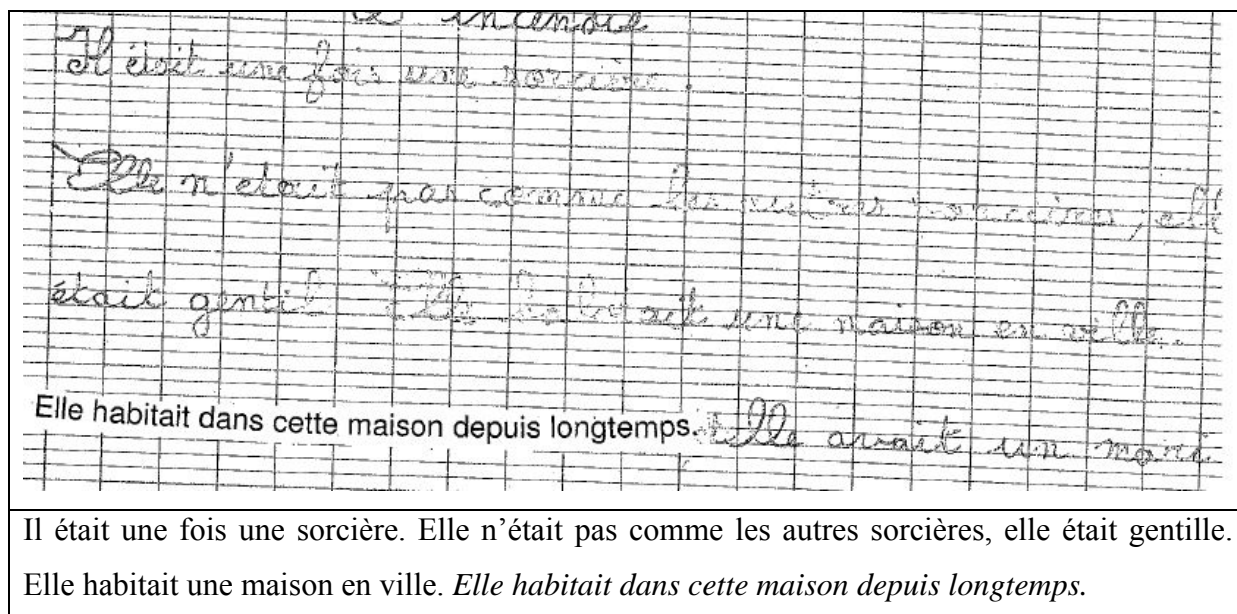 incendie
Il était une fois une sorcière.
Elle n'etait pas comme les autres sorcières, elle
était gentil Elle habitait une maison en ville.
Elle habitait dans cette maison depuis longtemps. elle avait un mari
Il était une fois une sorcière. Elle n'était pas comme les autres sorcières, elle était gentille.
Elle habitait une maison en ville. Elle habitait dans cette maison depuis longtemps.